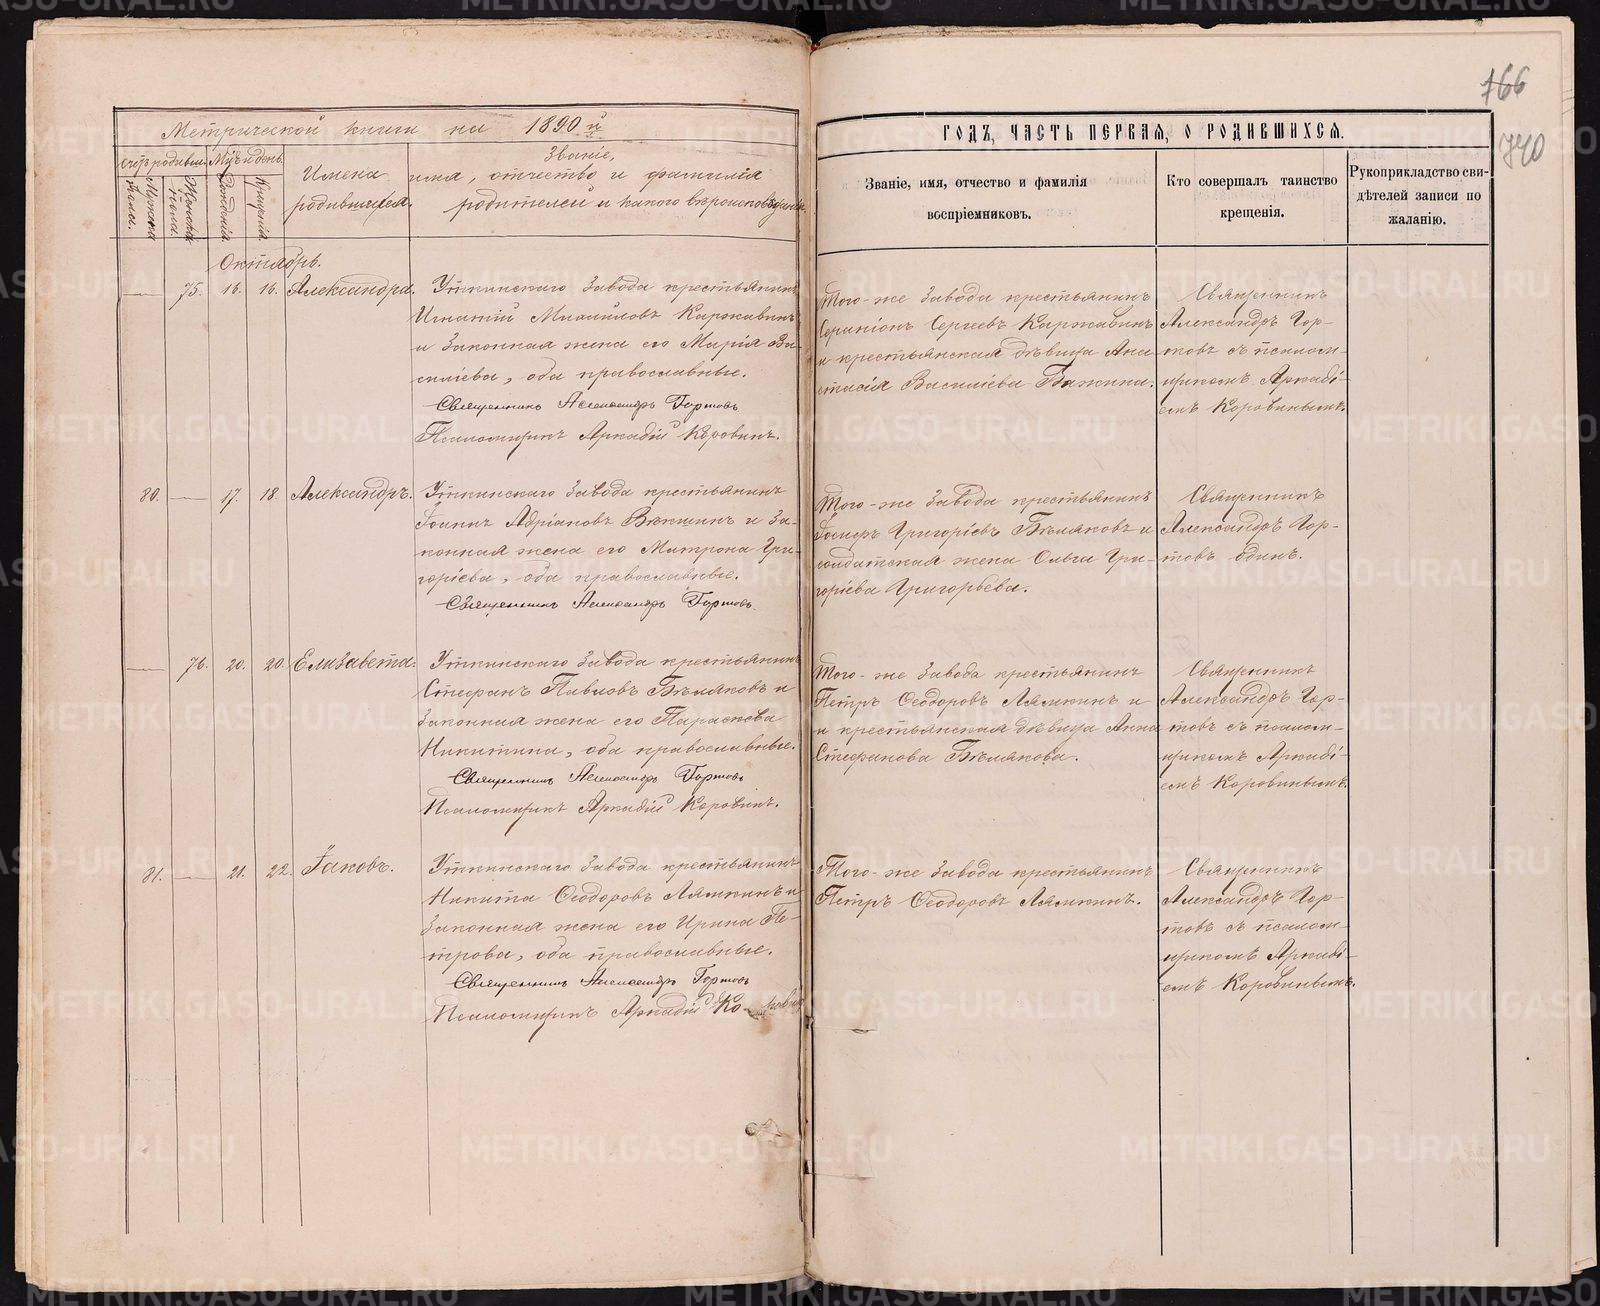 166
740
Метрической книги на 1890 й
ГОДЪ, ЧАСТЬ ПЕРВАЯ, О РОДИВШИХСЯ.
Счетъ родивш. Мцъ и день.
Мужска пола.
Женска пола.
Рожденія.
Крещенія.
Имена родившихся.
Званіе,
имя, отчество и фамилія
родителей и какого вѣроисповѣданія
Званіе, имя, отчество и фамилія
воспріемниковъ.
Кто совершалъ таинство
крещенія.
Рукоприкладство сви-
дѣтелей записи по
жаланію.
Октябрь.
75. 16. 16. Александра.
Уткинскаго Завода крестьянинъ
Игнатій Михаиловъ Каржавинъ
и Законная жена его Марія Ва-
силіева, оба православные.
Священникъ Александръ Гортовъ
Псаломщикъ Аркадій Коровинъ.
Того-же Завода крестьянинъ
Серапіонъ Сергеевъ Каржавинъ
и крестьянская дѣвица Ана-
стасія Василіева Бажина.
Священникъ
Александръ Гор-
товъ съ псалом-
щикомъ Аркаді-
емъ Коровинымъ.
80. 17. 18. Александръ.
Уткинскаго Завода крестьянинъ
Іоаннъ Адріановъ Векшинъ и За-
конная жена его Матрона Гри-
горіева, оба православные.
Священникъ Александръ Гортовъ.
Того-же Завода крестьянинъ
Іосифъ Григоріевъ Бѣляковъ и
солдатская жена Ольга Гри-
горіева Григорьева.
Священникъ
Александръ Гор-
товъ одинъ.
76. 20. 20. Елизавета.
Уткинскаго Завода крестьянинъ
Стефанъ Павловъ Бѣляковъ и
Законная жена его Параскева
Никитина, оба православные.
Священникъ Александръ Гортовъ
Псаломщикъ Аркадій Коровинъ.
Того-же Завода крестьянинъ
Петръ Ѳеодоровъ Лямкинъ и
и крестьянская дѣвица Анна
Стефанова Бѣлякова.
Священникъ
Александръ Гор-
товъ съ псалом-
щикомъ Аркаді-
емъ Коровинымъ.
81. 21. 22. Іаковъ.
Уткинскаго Завода крестьянинъ
Никита Ѳеодоровъ Лямкинъ и
Законная жена его Ирина Пе-
трова, оба православные.
Священникъ Александръ Гортовъ
Псаломщикъ Аркадій Коровинъ
Того-же Завода крестьянинъ
Петръ Ѳеодоровъ Лямкинъ.
Священникъ
Александръ Гор-
товъ съ псалом-
щикомъ Аркаді-
емъ Коровинымъ.
METRIKI.GASO-URAL.RU